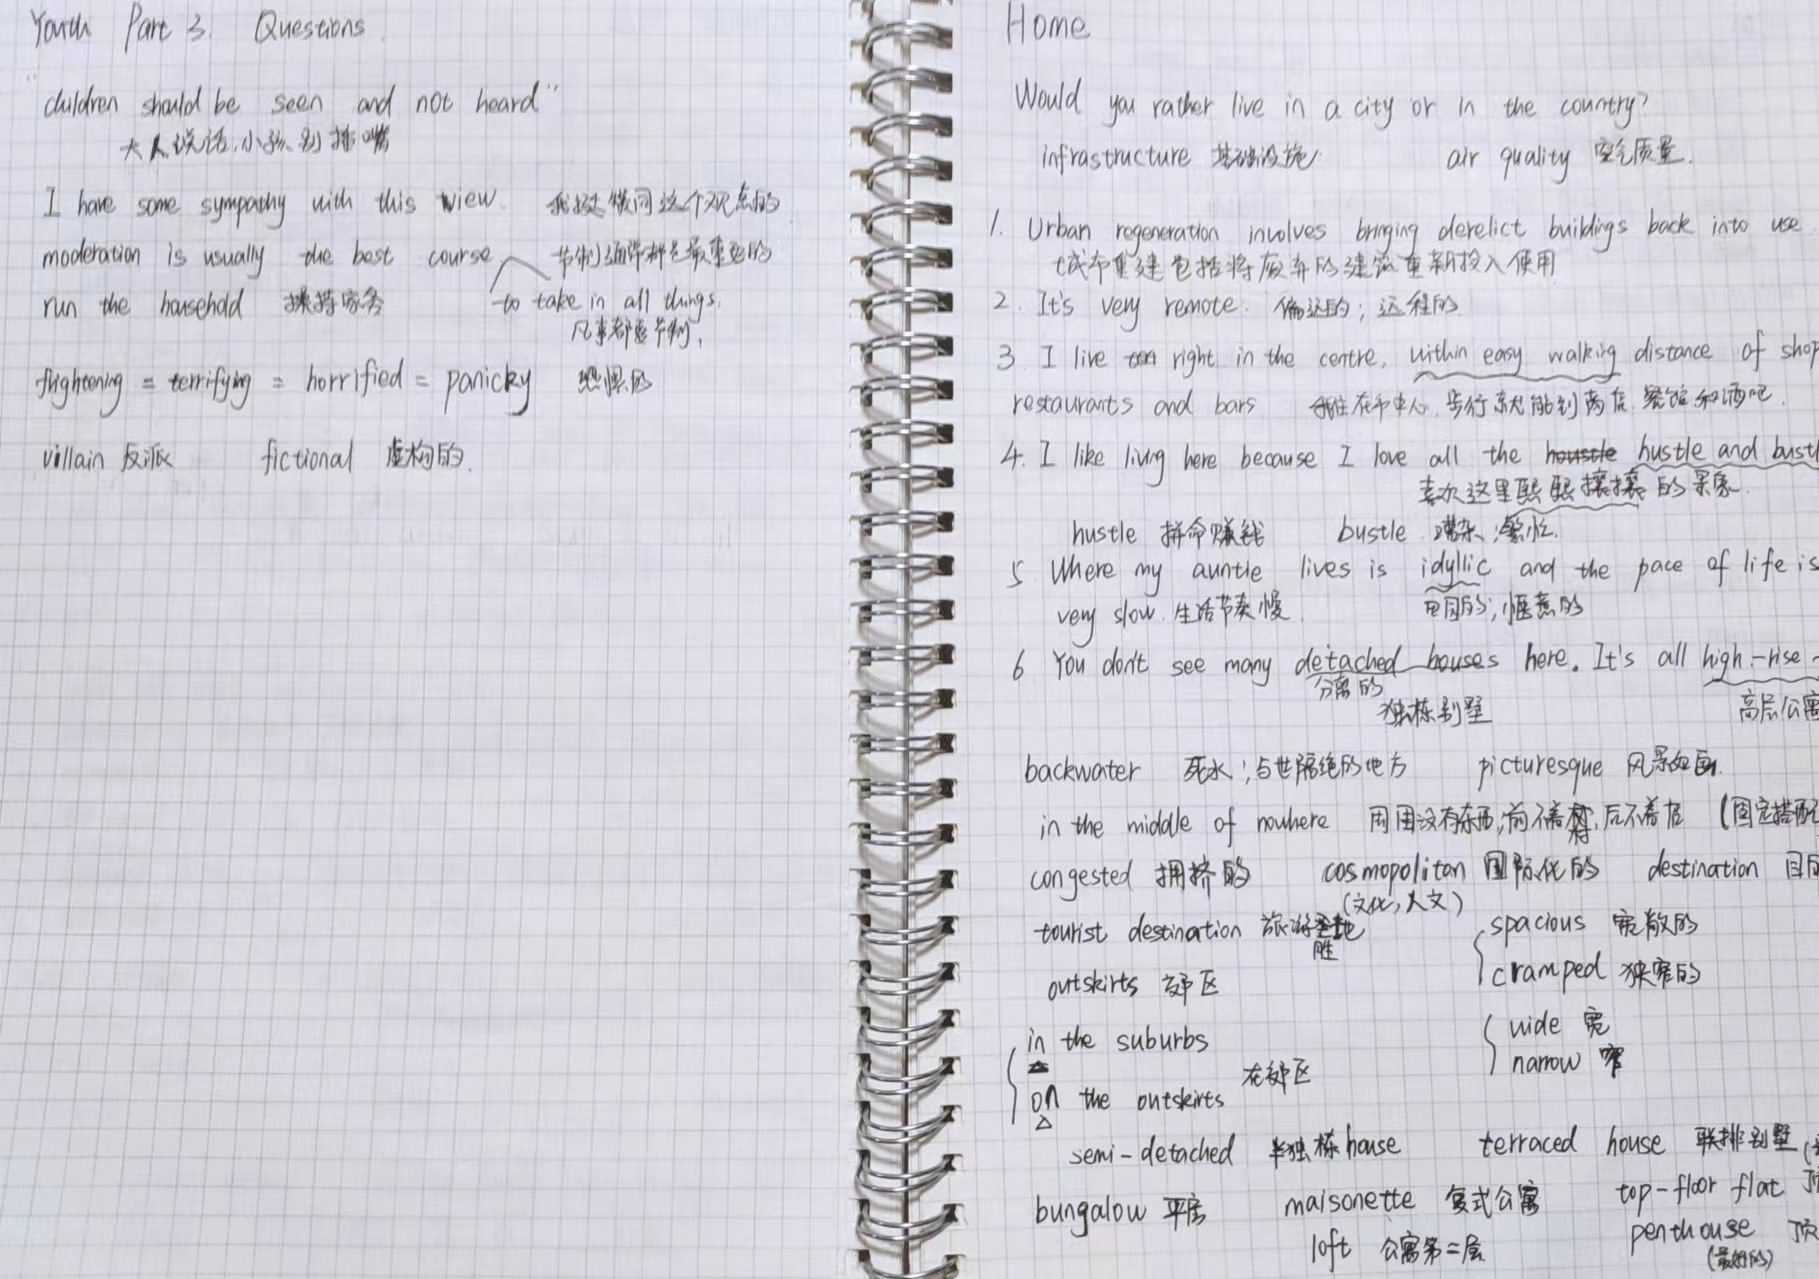 Youth Part 3. Questions
"children should be seen and not heard"
大人说话,小孩别插嘴
I have some sympathy with this view. 我挺赞同这个观点的
moderation is usually the best course 节制通常都是最重要的
run the household 操持家务 to take in all things.
凡事都要节制,
frightening = terrifying = horrified = panicky 恐惧的
villain 反派 fictional 虚构的.
Home
Would you rather live in a city or in the country?
infrastructure 基础设施 air quality 空气质量.
1. Urban regeneration involves bringing derelict buildings back into use.
城市重建包括将废弃的建筑重新投入使用
2. It's very remote. 偏远的; 远程的
3. I live right in the centre, within easy walking distance of shop
restaurants and bars 我住在市中心, 步行就能到商店, 餐馆和酒吧.
4. I like living here because I love all the houstle hustle and bustl
喜欢这里熙熙攘攘的景象.
hustle 拼命赚钱 bustle 嘈杂; 繁忙.
5. Where my auntie lives is idyllic and the pace of life is
very slow. 生活节奏慢 田园的; 惬意的
6 You don't see many detached houses here. It's all high-rise-
分离的
独栋别墅 高层公寓
backwater 死水; 与世隔绝的地方 picturesque 风景如画.
in the middle of nowhere 周围没有东西, 前不着村, 后不着店 (固定搭配
congested 拥挤的 cosmopolitan 国际化的 destination 目的
(文化, 人文)
tourist destination 旅游胜地 spacious 宽敞的
outskirts 郊区 cramped 狭窄的
in the suburbs wide 宽
在郊区 narrow 窄
on the outskirts
semi-detached 半独栋house terraced house 联排别墅
bungalow 平房 maisonette 复式公寓 top-floor flat 顶
loft 公寓第二层 penthouse 顶
(最好的)